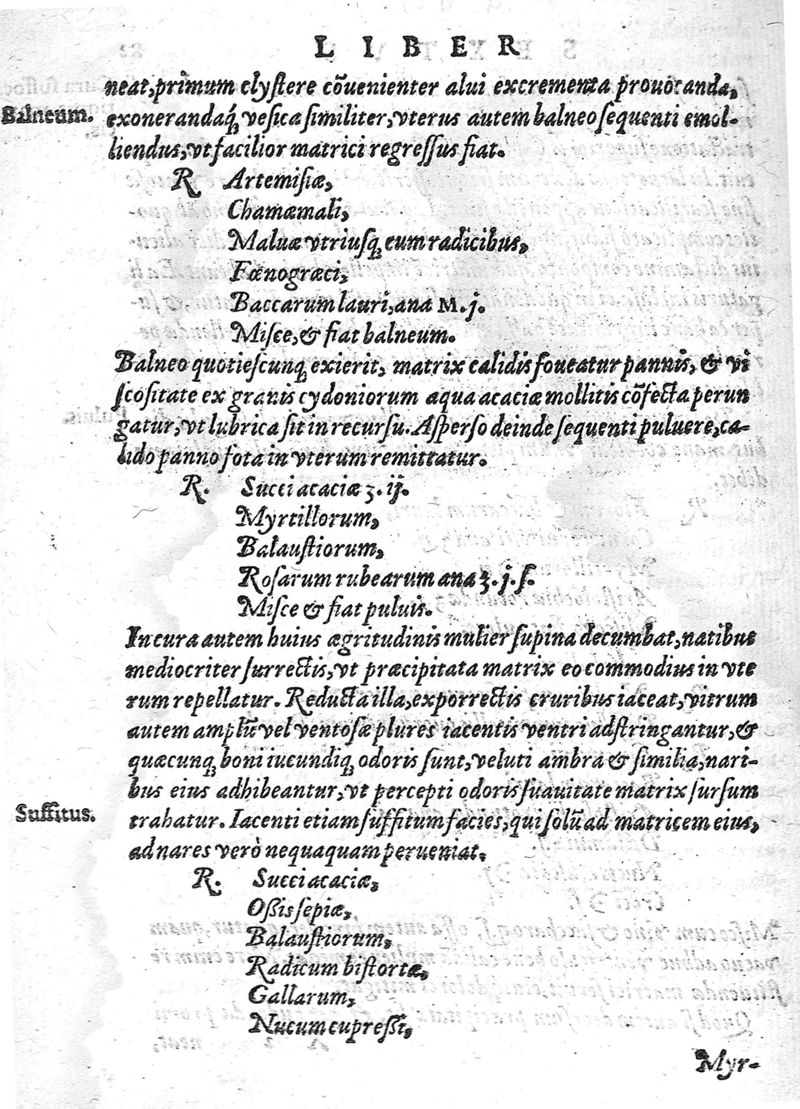 LIBER
neat, primum clystere cōuenienter alui excrementa prouocanda,
Balneum.
exonerandaq; vesica similiter, vterus autem balneo sequenti emol-
liendus, vt facilior matrici regressus fiat.
R Artemisiæ,
Chamæmali,
Maluæ vtriusq; cum radicibus,
Fœnogræci,
Baccarum lauri, ana M. j.
Misce, & fiat balneum.
Balneo quotiescunq; exierit, matrix calidis foueatur pannis, & vi
scositate ex granis cydoniorum aqua acaciæ mollitis cōfecta perun
gatur, vt lubrica sit in recursu. Asperso deinde sequenti puluere, ca-
lido panno fota in vterum remittatur.
R. Succi acaciæ ʒ. ij.
Myrtillorum,
Balaustiorum,
Rosarum rubearum ana ʒ. j. s.
Misce & fiat puluis.
In cura autem huius ægritudinis mulier supina decumbat, natibus
mediocriter surrectis, vt præcipitata matrix eo commodius in vte
rum repellatur. Reducta illa, exporrectis cruribus iaceat, vitrum
autem amplū vel ventosæ plures iacentis ventri adstringantur, &
quæcunq; boni iucundiq; odoris sunt, veluti ambra & similia, nari-
bus eius adhibeantur, vt percepti odoris suauitate matrix sursum
Suffitus.
trahatur. Iacenti etiam suffitum facies, qui solū ad matricem eius,
ad nares verò nequaquam perueniat.
R. Succi acaciæ,
Ossis sepiæ,
Balaustiorum,
Radicum bistortæ,
Gallarum,
Nucum cupressi,
Myr-